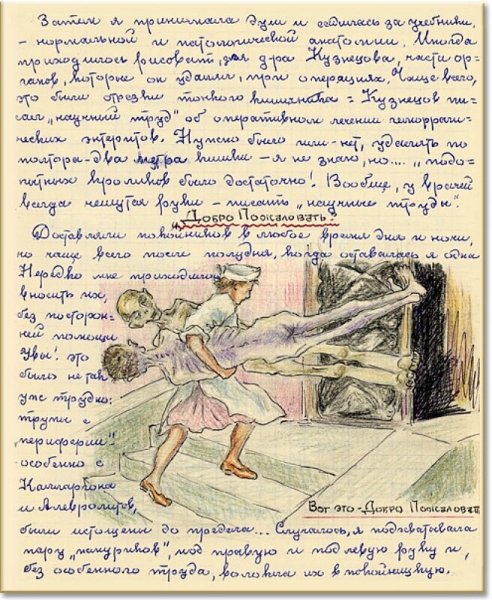 Затем я принимала душ и садилась за учебники
- нормальной и патологической анатомии. Иногда
приходилось рисовать, для д-ра Кузнецова, части ор-
ганов, которые он удалил, при операциях. Чаще всего,
это были отрезки тонкого кишечника = Кузнецов пи-
сал „научный труд" об оперативном лечении геморраги-
ческих энтеритов. Нужно было или-нет, удалять по
полтора-два метра кишки - я не знаю, но.... „подо-
пытных кроликов было достаточно! Вообще, у врачей
всегда чешутся руки - писать „научные труды".
„Добро Пожаловать!"
Доставляли покойников в любое время дня и ночи,
но чаще всего после полудня, когда оставалась я одна
Нередко мне приходилось
вносить их,
без посторон-
ней помощи
Увы! это
было не так
уж трудно:
трупы с
„периферии"
особенно с
Каллargона
и Алевролитов,
были истощены до предела... Случалось, я подхватывала
пару „жмуриков", под правую и под левую руку и,
без особенного труда, волокла их в покойницкую.
Вот это - Добро Пожаловать